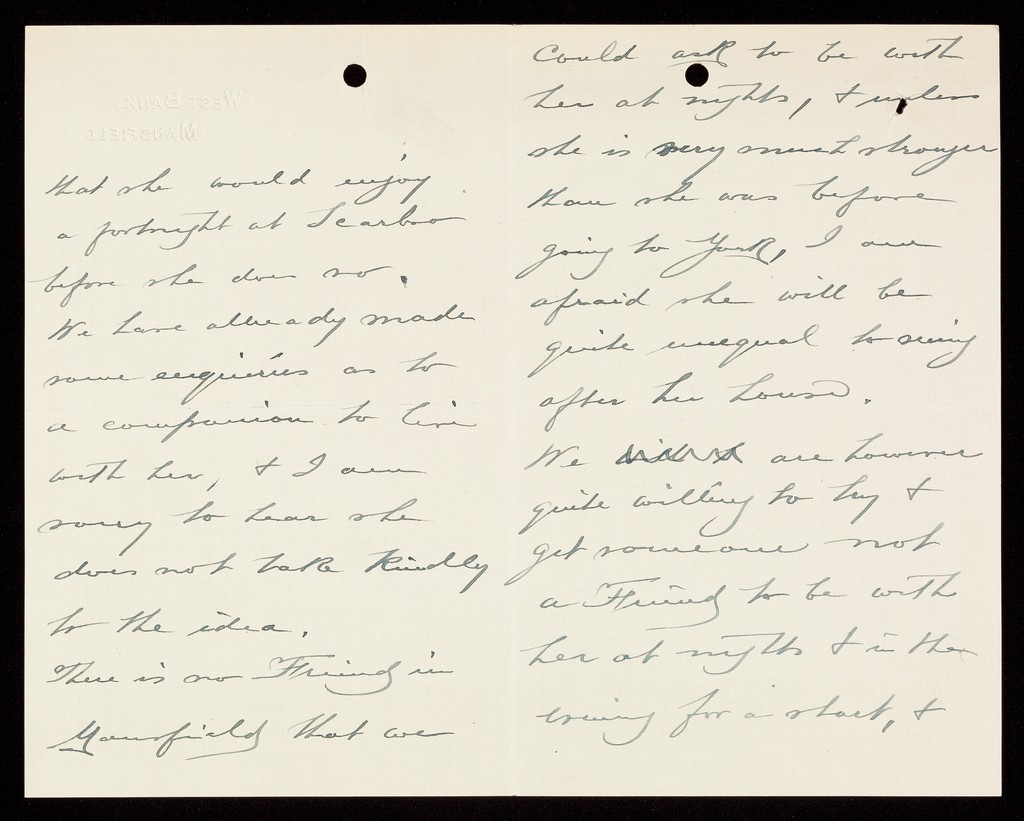 WEST BANK.
MANSFIELD.
that she would enjoy
a fortnight at Scarbro
before she does so.
We have allready made
some enquiries as to
a companion to live
with her, & I am
sorry to hear she
does not take kindly
to the idea.
There is no Friend in
Mansfield that we
could ask to be with
her at nights, & unless
she is very much stronger
than she was before
going to York, I am
afraid she will be
quite unequal to seeing
after her house.
We are however
quite willing to try &
get someone not
a Friend to be with
her at nights & in the
evening for a start, &